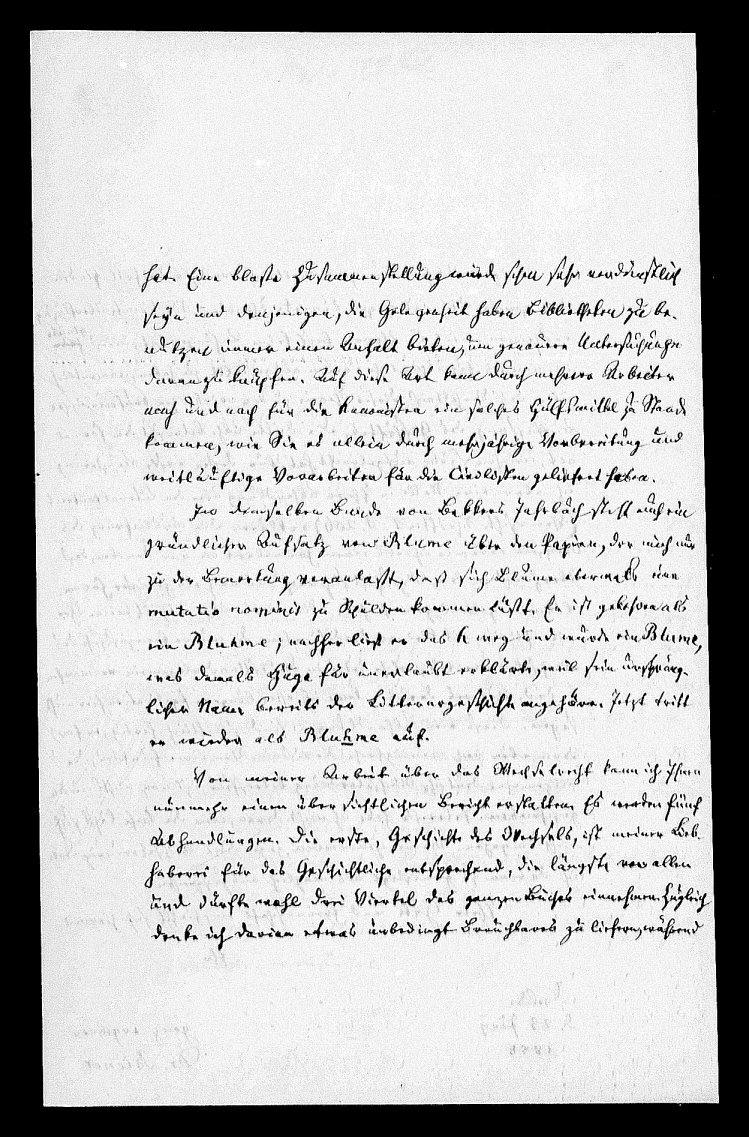 hat. Eine bloße Zusammenstellung würde schon sehr verdienstlich
seyn und denjenigen, die Gelegenheit haben Bibliotheken zu be-
nutzen immer einen Anhalt bieten, um genauere Untersuchungen
daran zu knüpfen. Auf diese Art kann durch mehrere Arbeiter
nach und nach für die Kanonisten ein solches Hülfsmittel zu Stande
kommen, wie Sie es allein durch mehrjährige Vorbereitung und
weitläuftige Vorarbeiten für die Civilisten geliefert haben.
In demselben Bande von Bekkers Jahrbuch steht auch ein
gründlicher Aufsatz von Blume über den Papian, der mich nur
zu der Bemerkung veranlaßt, daß sich Blume abermals eine
mutatio nominis zu Schulden kommen läßt. Er ist geboren als
ein Bluhme, nachher ließ er das h weg und wurde ein Blume,
was damals Hugo für unerlaubt erklärte, weil sein ursprüng-
licher Name bereits der Litterärgeschichte angehöre. Jetzt tritt
er wieder als Bluhme auf.
Von meiner Arbeit über das Wechselrecht kann ich Ihnen
nunmehr einen übersichtlichen Bericht erstatten. Es werden fünf
Abhandlungen. Die erste, Geschichte des Wechsels, ist meiner Lieb-
haberei für das Geschichtliche entsprechend, die längste von allen
und dürfte wohl drei Viertel des ganzen Buches einnehmen. Zugleich
denke ich darin etwas unbedingt Brauchbares zu liefern, während